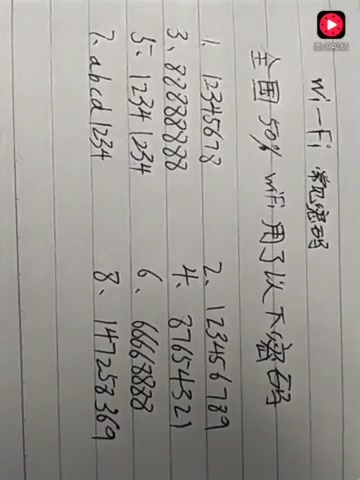 Wi-Fi 常见密码
全国50% WiFi 用了以下密码
1、12345678 2、123456789
3、88888888 4、87654321
5、12341234 6、66668888
7、abcd1234 8、147258369